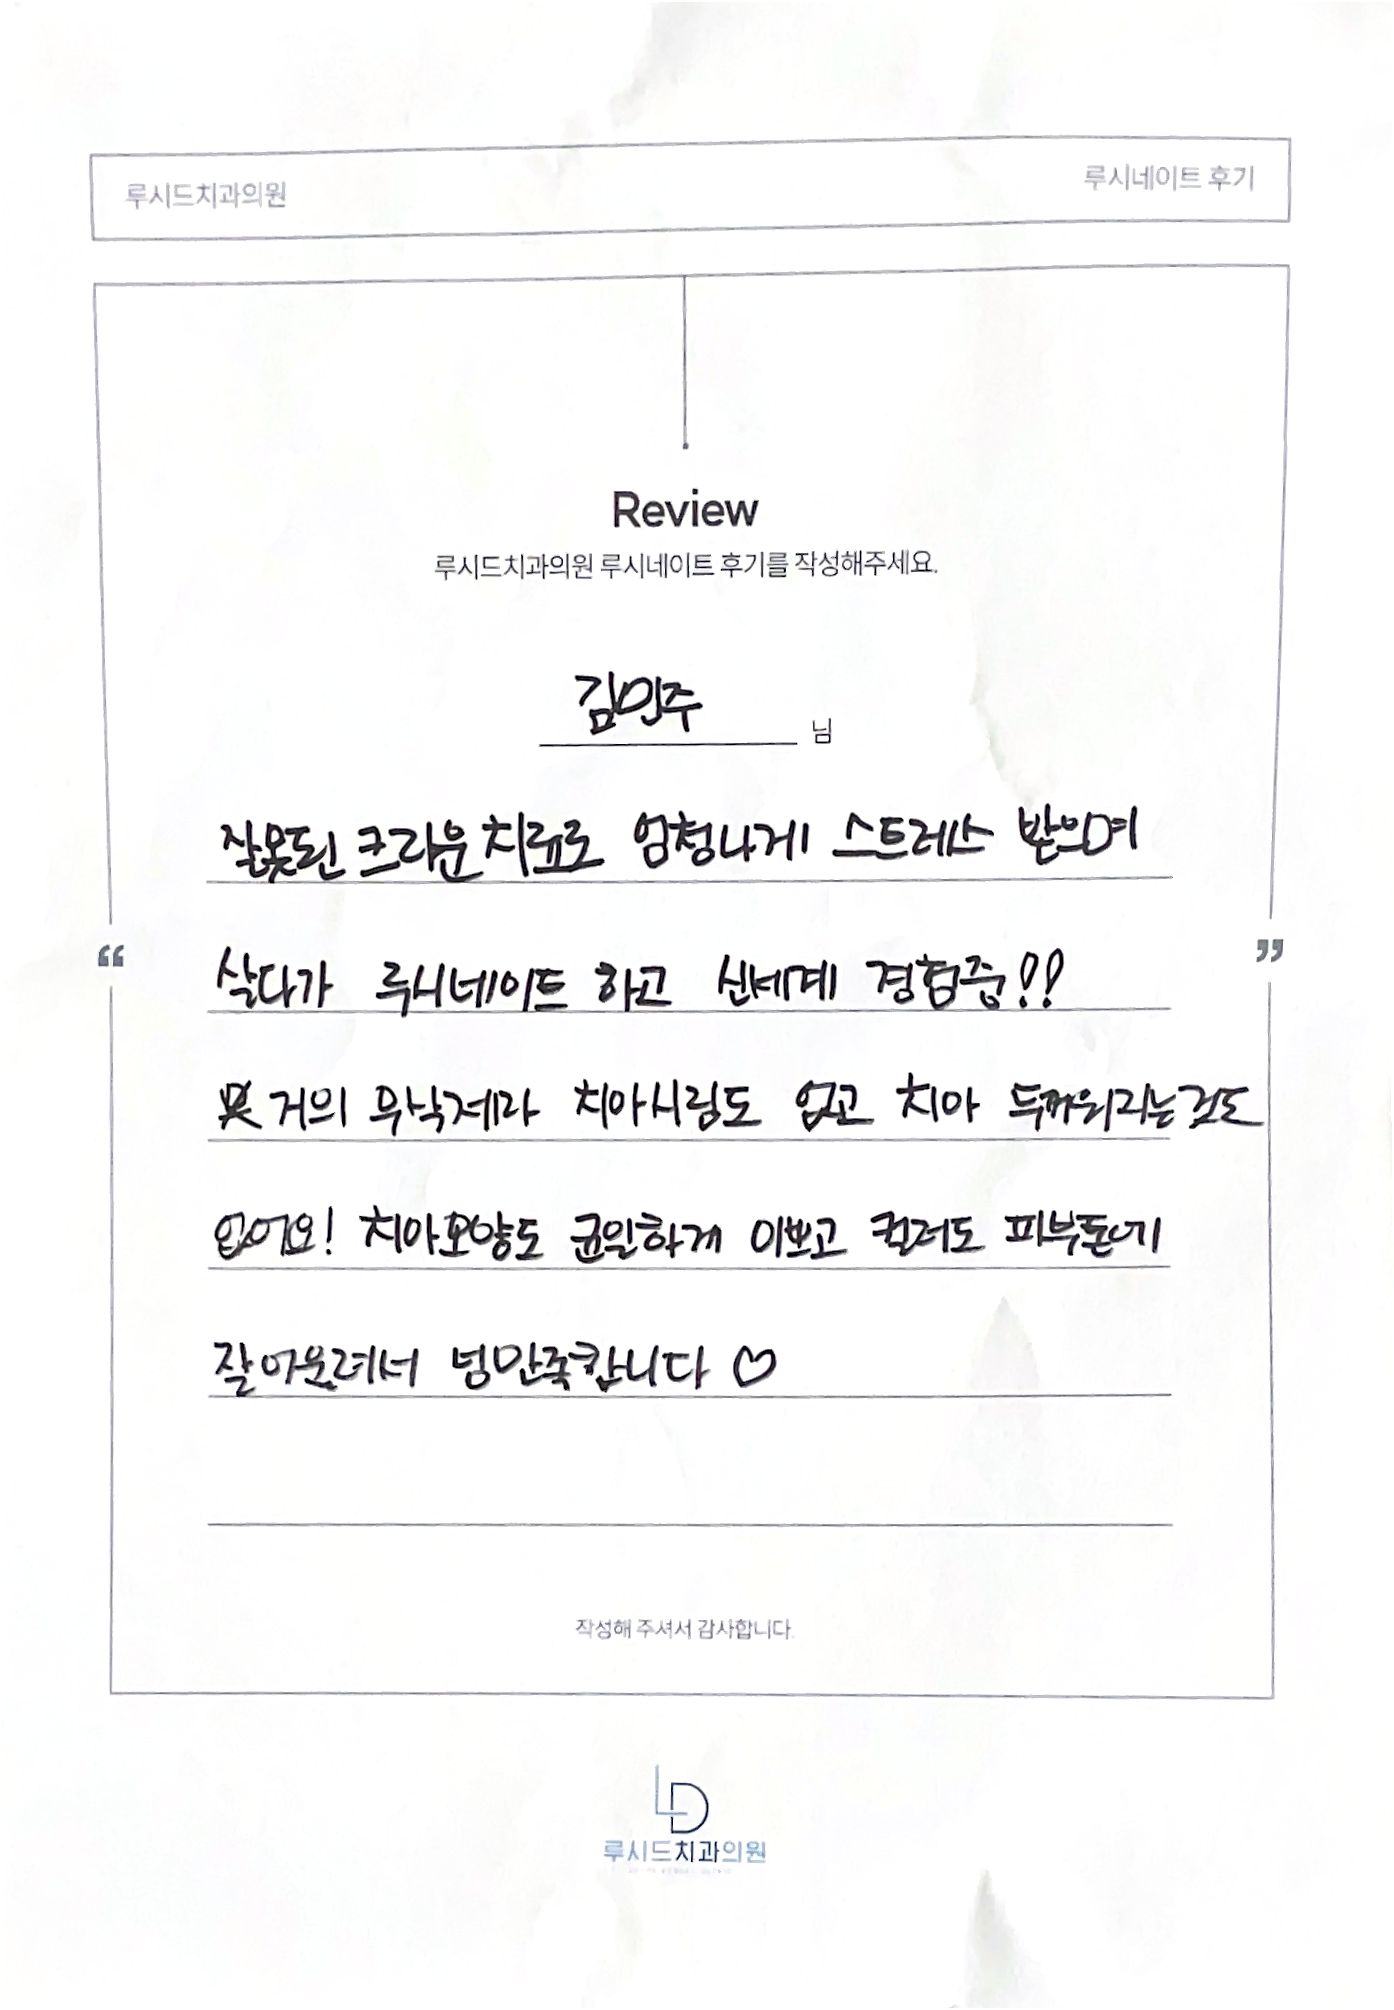 루시드치과의원
루시네이트 후기
Review
루시드치과의원 루시네이트 후기를 작성해주세요.
김민주 님
잘못된 크라운 치료로 엄청나게 스트레스 받으며
“ 살다가 루시네이트 하고 신세계 경험중!! ”
거의 무삭제라 치아시림도 없고 치아 두꺼워지는것도
없어요! 치아모양도 균일하게 이쁘고 컬러도 피부톤에
잘어울려서 넘만족합니다 ♡
작성해 주셔서 감사합니다.
LD
루시드치과의원